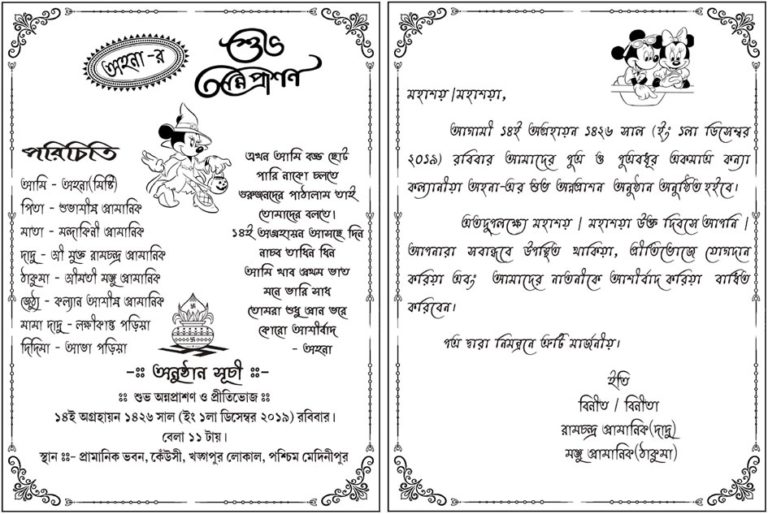 অহনা -র
শুভ
অন্নপ্রাশন
পরিচিতি
আমি - অহনা(মিষ্টি)
পিতা - শুভাশীষ প্রামানিক
মাতা - মন্দাকিনী প্রামানিক
দাদু - শ্রী যুক্ত রামচন্দ্র প্রামানিক
ঠাকুমা - শ্রীমতী মঞ্জু প্রামানিক
জেঠু - কল্যান আশীষ প্রামানিক
মামা দাদু - লক্ষীকান্ত পড়িয়া
দিদিমা - আভা পড়িয়া
এখন আমি বড্ড ছোট
পারি নাকো চলতে
গুরুজনদের পাঠালাম তাই
তোমাদের বলতে।
১৪ই অগ্রহায়ন আসছে দিন
নাচব তাধিন ধিন
আমি খাব প্রথম ভাত
মনে ভারি সাধ
তোমরা শুধু প্রান ভরে
কোরো আশীর্বাদ
- অহনা
-ঃঃ অনুষ্ঠান সূচী ঃঃ-
ঃঃ শুভ অন্নপ্রাশণ ও প্রীতিভোজ ঃঃ
১৪ই অগ্রহায়ন ১৪২৬ সাল (ইং ১লা ডিসেম্বর ২০১৯) রবিবার।
বেলা ১১ টায়।
স্থান ঃঃ- প্রামানিক ভবন, কেঁউসী, খড়্গপুর লোকাল, পশ্চিম মেদিনীপুর
মহাশয় / মহাশয়া,
আগামী ১৪ই অগ্রহায়ন ১৪২৬ সাল (ইং ১লা ডিসেম্বর
২০১৯) রবিবার আমাদের পুত্র ও পুত্রবধূর একমাত্র কন্যা
কল্যানীয়া অহনা-এর শুভ অন্নপ্রাশন অনুষ্ঠান অনুষ্ঠিত হইবে।
এতদুপলক্ষ্যে মহাশয় / মহাশয়া উক্ত দিবসে আপনি /
আপনারা সবান্ধবে উপস্থিত থাকিয়া, প্রীতিভোজে যোগদান
করিয়া এবং আমাদের নাতনীকে আশীর্বাদ করিয়া বাধিত
করিবেন।
পত্র দ্বারা নিমন্ত্রনে ত্রুটি মার্জনীয়।
ইতি
বিনীত / বিনীতা
রামচন্দ্র প্রামানিক(দাদু)
মঞ্জু প্রামানিক(ঠাকুমা)